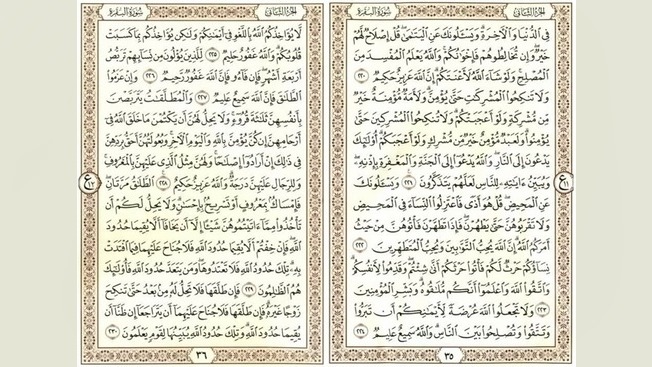 الجُزْءُ الثَّانِي سُورَةُ البَقَرَةِ
فِي ٱلدُّنْيَا وَٱلْأَخِرَةِ ۗ وَيَسْـَٔلُونَكَ عَنِ ٱلْيَتَٰمَىٰ ۖ قُلْ إِصْلَاحٌ لَّهُمْ
خَيْرٌ ۖ وَإِن تُخَالِطُوهُمْ فَإِخْوَٰنُكُمْ ۚ وَٱللَّهُ يَعْلَمُ ٱلْمُفْسِدَ مِنَ
ٱلْمُصْلِحِ ۚ وَلَوْ شَآءَ ٱللَّهُ لَأَعْنَتَكُمْ ۚ إِنَّ ٱللَّهَ عَزِيزٌ حَكِيمٌ ٢٢٠
وَلَا تَنكِحُوا۟ ٱلْمُشْرِكَٰتِ حَتَّىٰ يُؤْمِنَّ ۚ وَلَأَمَةٌ مُّؤْمِنَةٌ خَيْرٌ
مِّن مُّشْرِكَةٍ وَلَوْ أَعْجَبَتْكُمْ ۗ وَلَا تُنكِحُوا۟ ٱلْمُشْرِكِينَ حَتَّىٰ
يُؤْمِنُوا۟ ۚ وَلَعَبْدٌ مُّؤْمِنٌ خَيْرٌ مِّن مُّشْرِكٍ وَلَوْ أَعْجَبَكُمْ ۗ أُو۟لَٰٓئِكَ
يَدْعُونَ إِلَى ٱلنَّارِ ۖ وَٱللَّهُ يَدْعُوٓا۟ إِلَى ٱلْجَنَّةِ وَٱلْمَغْفِرَةِ بِإِذْنِهِۦ ۖ
وَيُبَيِّنُ ءَايَٰتِهِۦ لِلنَّاسِ لَعَلَّهُمْ يَتَذَكَّرُونَ ٢٢١ وَيَسْـَٔلُونَكَ
عَنِ ٱلْمَحِيضِ ۖ قُلْ هُوَ أَذًى فَٱعْتَزِلُوا۟ ٱلنِّسَآءَ فِي ٱلْمَحِيضِ
وَلَا تَقْرَبُوهُنَّ حَتَّىٰ يَطْهُرْنَ ۖ فَإِذَا تَطَهَّرْنَ فَأْتُوهُنَّ مِنْ حَيْثُ
أَمَرَكُمُ ٱللَّهُ ۚ إِنَّ ٱللَّهَ يُحِبُّ ٱلتَّوَّٰبِينَ وَيُحِبُّ ٱلْمُتَطَهِّرِينَ ٢٢٢
نِسَآؤُكُمْ حَرْثٌ لَّكُمْ فَأْتُوا۟ حَرْثَكُمْ أَنَّىٰ شِئْتُمْ ۖ وَقَدِّمُوا۟ لِأَنفُسِكُمْ ۚ
وَٱتَّقُوا۟ ٱللَّهَ وَٱعْلَمُوٓا۟ أَنَّكُم مُّلَٰقُوهُ ۗ وَبَشِّرِ ٱلْمُؤْمِنِينَ
٢٢٣ وَلَا تَجْعَلُوا۟ ٱللَّهَ عُرْضَةً لِّأَيْمَٰنِكُمْ أَن تَبَرُّوا۟
وَتَتَّقُوا۟ وَتُصْلِحُوا۟ بَيْنَ ٱلنَّاسِ ۗ وَٱللَّهُ سَمِيعٌ عَلِيمٌ ٢٢٤
٣٥
ع ١١
الجُزْءُ الثَّانِي سُورَةُ البَقَرَةِ
لَّا يُؤَاخِذُكُمُ ٱللَّهُ بِٱللَّغْوِ فِيٓ أَيْمَٰنِكُمْ وَلَٰكِن يُؤَاخِذُكُم بِمَا كَسَبَتْ
قُلُوبُكُمْ ۗ وَٱللَّهُ غَفُورٌ حَلِيمٌ ٢٢٥ لِّلَّذِينَ يُؤْلُونَ مِن نِّسَآئِهِمْ تَرَبُّصُ
أَرْبَعَةِ أَشْهُرٍ ۖ فَإِن فَآءُو فَإِنَّ ٱللَّهَ غَفُورٌ رَّحِيمٌ ٢٢٦ وَإِنْ عَزَمُوا۟
ٱلطَّلَٰقَ فَإِنَّ ٱللَّهَ سَمِيعٌ عَلِيمٌ ٢٢٧ وَٱلْمُطَلَّقَٰتُ يَتَرَبَّصْنَ
بِأَنفُسِهِنَّ ثَلَٰثَةَ قُرُوٓءٍ ۚ وَلَا يَحِلُّ لَهُنَّ أَن يَكْتُمْنَ مَا خَلَقَ ٱللَّهُ فِيٓ
أَرْحَامِهِنَّ إِن كُنَّ يُؤْمِنَّ بِٱللَّهِ وَٱلْيَوْمِ ٱلْأَخِرِ ۚ وَبُعُولَتُهُنَّ أَحَقُّ بِرَدِّهِنَّ
فِي ذَٰلِكَ إِنْ أَرَادُوٓا۟ إِصْلَٰحًا ۚ وَلَهُنَّ مِثْلُ ٱلَّذِي عَلَيْهِنَّ بِٱلْمَعْرُوفِ ۚ
وَلِلرِّجَالِ عَلَيْهِنَّ دَرَجَةٌ ۗ وَٱللَّهُ عَزِيزٌ حَكِيمٌ ٢٢٨ ٱلطَّلَٰقُ مَرَّتَانِ ۖ
فَإِمْسَاكٌۢ بِمَعْرُوفٍ أَوْ تَسْرِيحٌۢ بِإِحْسَٰنٍ ۗ وَلَا يَحِلُّ لَكُمْ أَن
تَأْخُذُوا۟ مِمَّآ ءَاتَيْتُمُوهُنَّ شَيْـًٔا إِلَّآ أَن يَخَافَآ أَلَّا يُقِيمَا حُدُودَ
ٱللَّهِ ۖ فَإِنْ خِفْتُمْ أَلَّا يُقِيمَا حُدُودَ ٱللَّهِ فَلَا جُنَاحَ عَلَيْهِمَا فِيمَا ٱفْتَدَتْ
بِهِۦ ۗ تِلْكَ حُدُودُ ٱللَّهِ فَلَا تَعْتَدُوهَا ۚ وَمَن يَتَعَدَّ حُدُودَ ٱللَّهِ فَأُو۟لَٰٓئِكَ
هُمُ ٱلظَّٰلِمُونَ ٢٢٩ فَإِن طَلَّقَهَا فَلَا تَحِلُّ لَهُۥ مِنۢ بَعْدُ حَتَّىٰ تَنكِحَ
زَوْجًا غَيْرَهُۥ ۗ فَإِن طَلَّقَهَا فَلَا جُنَاحَ عَلَيْهِمَآ أَن يَتَرَاجَعَآ إِن ظَنَّآ أَن
يُقِيمَا حُدُودَ ٱللَّهِ ۗ وَتِلْكَ حُدُودُ ٱللَّهِ يُبَيِّنُهَا لِقَوْمٍ يَعْلَمُونَ ٢٣٠
٣٦
ع ١٢